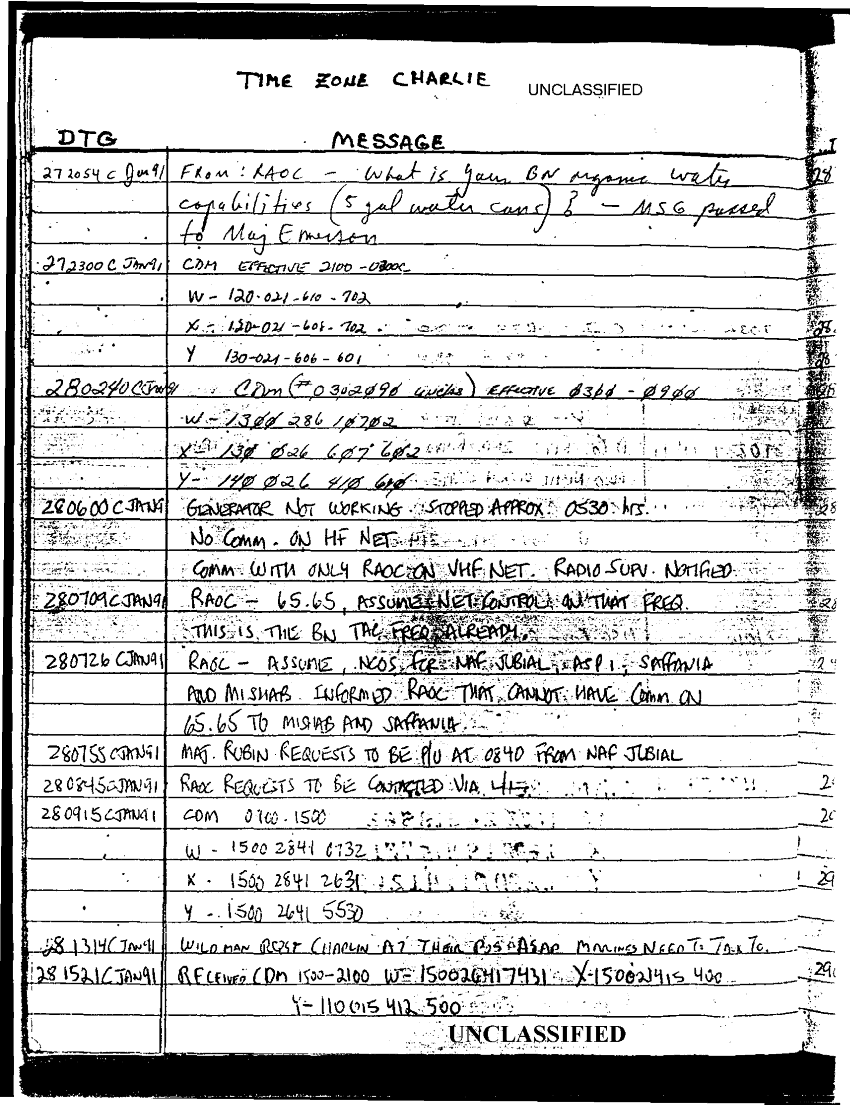 TIME ZONE CHARLIE UNCLASSIFIED
DTG MESSAGE
272054 C Jan 91 FROM: RAOC - What is your BN organic water
capabilities (5 gal water cans)? - MSG passed
to Maj Emerson
272300 C JAN91 CDM EFFECTIVE 2100-0300C
W - 120-021-610-702
X - 120-021-608-702
Y 130-021-606-601
280240CJAN91 CDM (#030209Ø EFFECTIVE Ø3ØØ - Ø9ØØ
W - 13ØØ 286 1Ø7Ø2
X - 13Ø Ø26 6Ø7 6Ø2
Y - 14Ø Ø26 41Ø 6Ø
280600 C JAN91 GENERATOR NOT WORKING. STOPPED APPROX. 0530 hrs.
NO COMM. ON HF NET
COMM WITH ONLY RAOC ON VHF NET. RADIO SUPV. NOTIFIED
280709CJAN91 RAOC - 65.65, ASSUME NET CONTROL ON THAT FREQ.
THIS IS THE BN TAC FREQ ALREADY.
280726 CJAN91 RAOC - ASSUME, NCOS, FOR NAF JUBIAL, ASP 1, SAFFANIA
AND MISHAB. INFORMED RAOC THAT CANNOT HAVE COMM ON
65.65 TO MISHAB AND SAFFANIA.
280755CJAN91 MAJ. RUBIN REQUESTS TO BE P/U AT 0840 FROM NAF JUBIAL
280845CJAN91 RAOC REQUESTS TO BE CONTACTED VIA HF
280915CJAN91 CDM 0700-1500
W - 1500 2841 0732
X - 1500 2841 2631
Y - 1500 2641 5530
281314CJAN91 WILDMAN CHAPLIN AT THEIR POS ASAP MARINES NEED TO TALK TO.
281521CJAN91 RECEIVED CDM 1500-2100 W=150026417431 X-150021415 400
Y-110015 412 500
UNCLASSIFIED